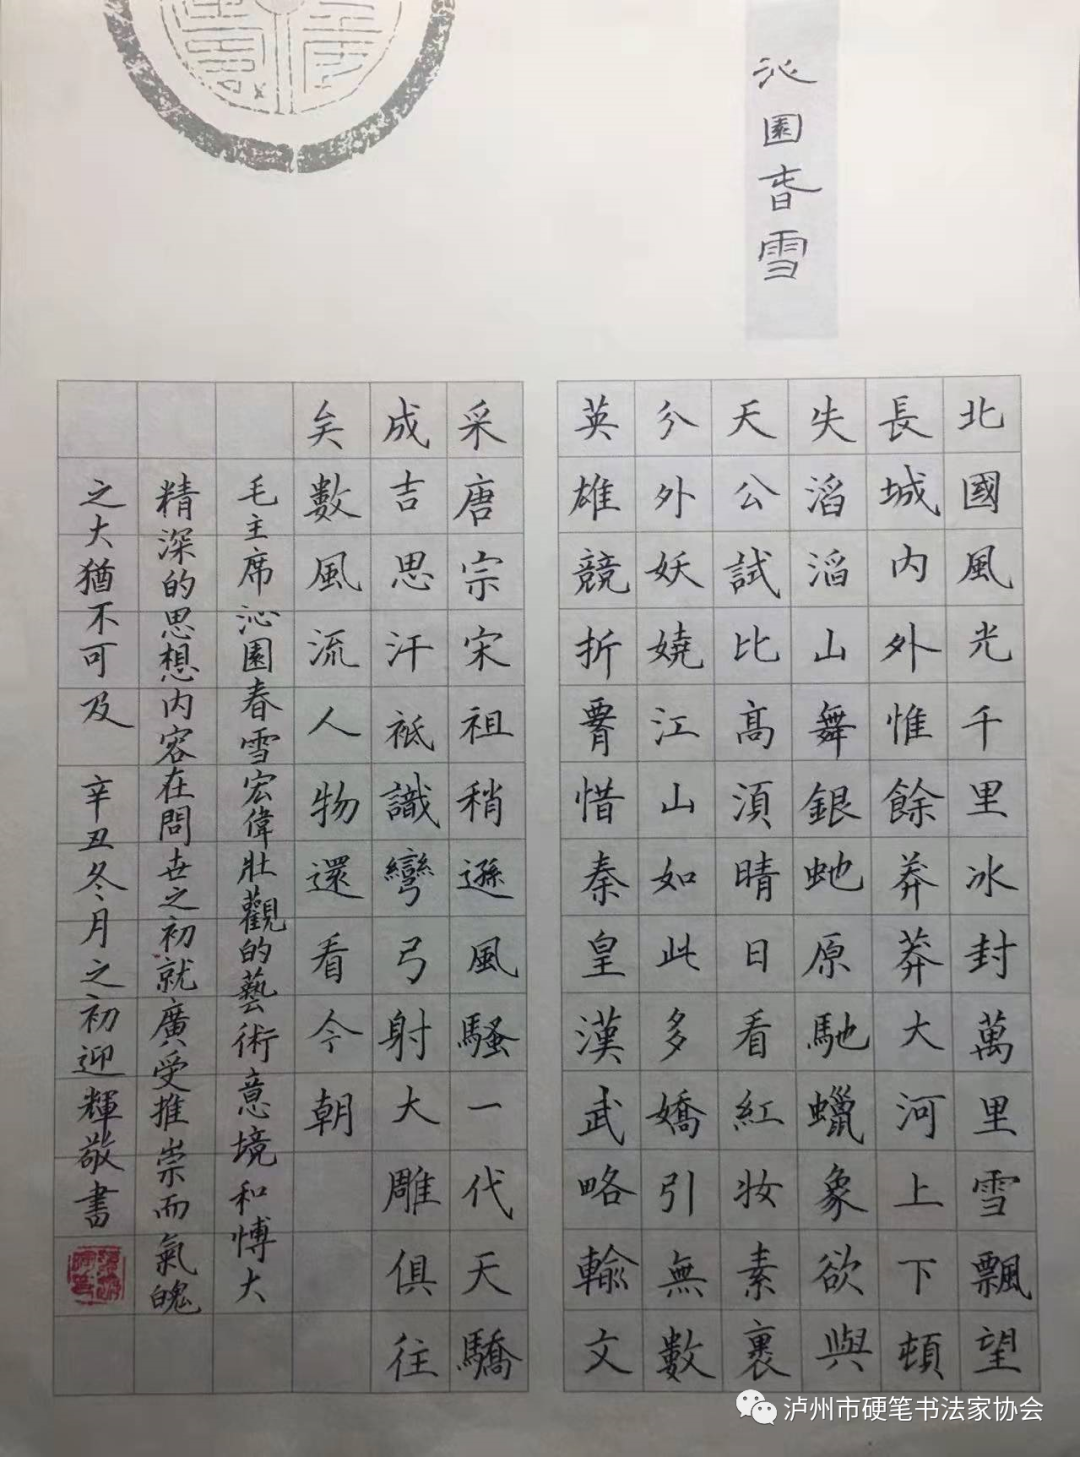 沁園春雪
北國風光千里冰封萬里雪飄望
長城內外惟餘莽莽大河上下頓
失滔滔山舞銀虵原馳蠟象欲與
天公試比高須晴日看紅妝素裹
分外妖嬈江山如此多嬌引無數
英雄競折腰惜秦皇漢武略輸文
采唐宗宋祖稍遜風騷一代天驕
成吉思汗祗識彎弓射大雕俱往
矣數風流人物還看今朝
毛主席沁園春雪宏偉壯觀的藝術意境和博大
精深的思想內容在問世之初就廣受推崇而氣魄
之大猶不可及 辛丑冬月之初迎輝敬書
泸州市硬笔书法家协会